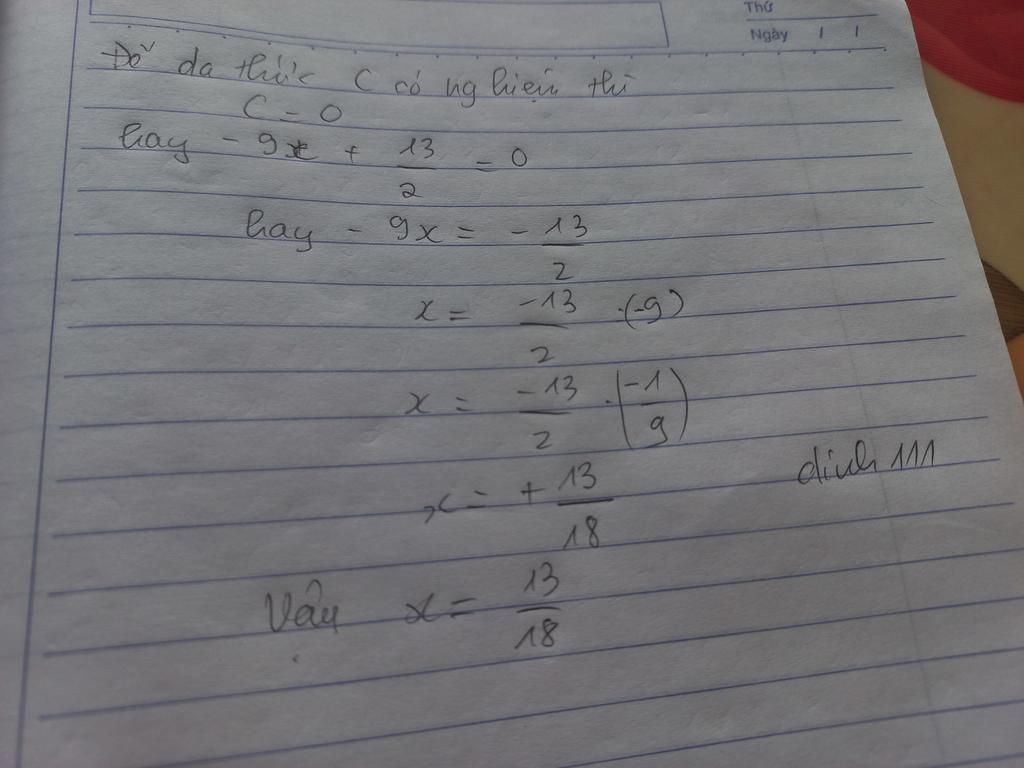 Thứ
Ngày / /
Để đa thức C có nghiệm thì
C = 0
hay - 9x + 13/2 = 0
hay - 9x = - 13/2
x = -13/2 .(-9)
x = -13/2 . (-1/9)
x = + 13/18
dinh 111
Vậy x = 13/18